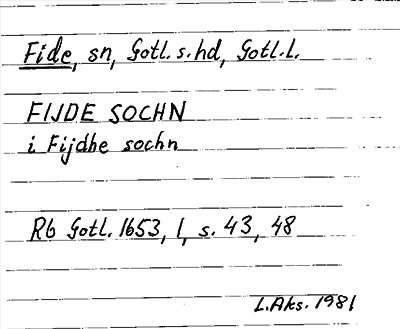 Fide, sn, Gotl. s. hd, Gotl. l.
FIJDE SOCHN
i Fijdhe sochn
Rb Gotl. 1653, 1, s. 43, 48
L. Aks. 1981